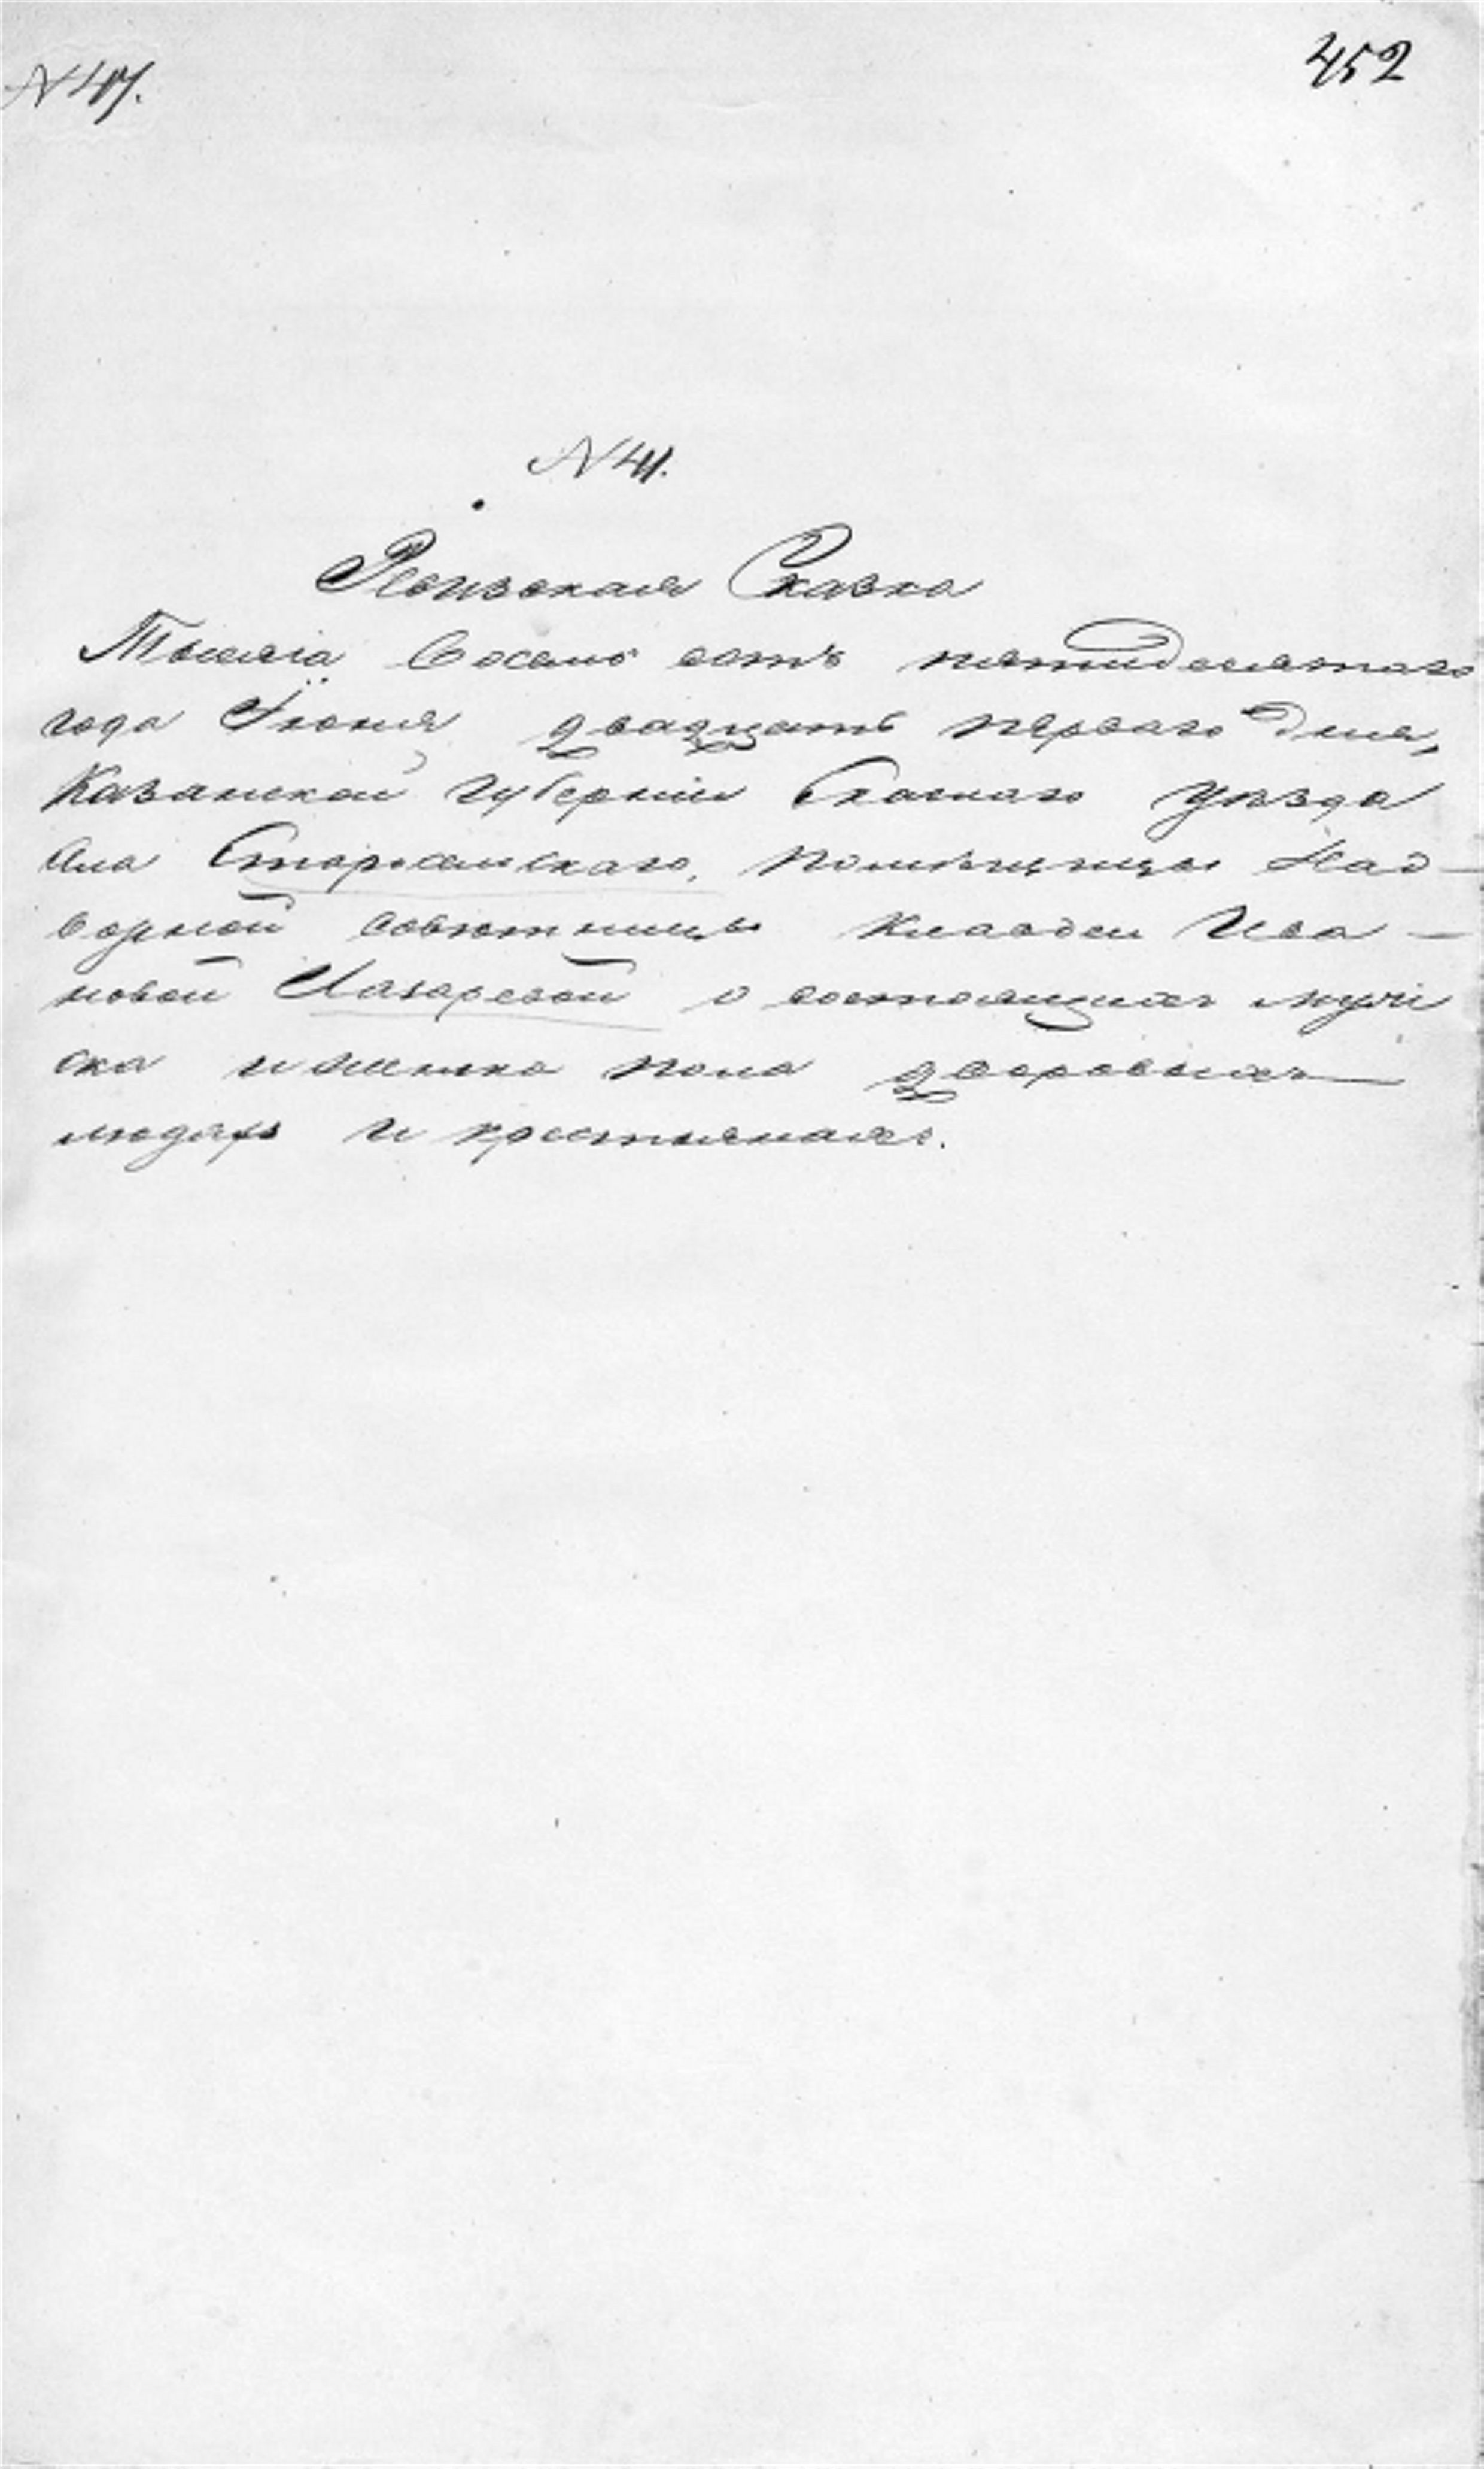 N 41.
452
N 41.
Ревизская Сказка
Тысяча восемь сотъ пятидесятаго
года Іюня двадцать перваго дня,
Казанской губерніи Спаскаго уѣзда
села Старосельскаго, помѣщицы Над-
ворной совѣтницы Клавдеи Ива-
новой Лазаревой о состоящихъ мужи
ска и женска пола дворовыхъ
людяхъ и крестьянахъ.